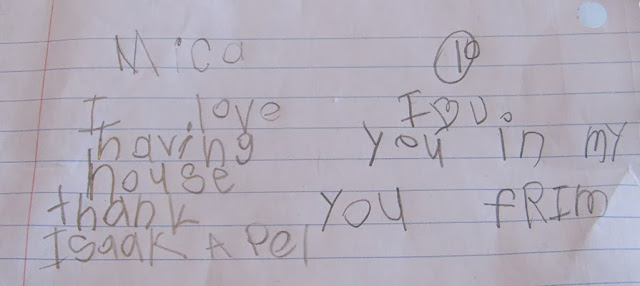 Mica 10
I love I♡U.
having you in my
house
thank you fRIM
ISaaK A Pel